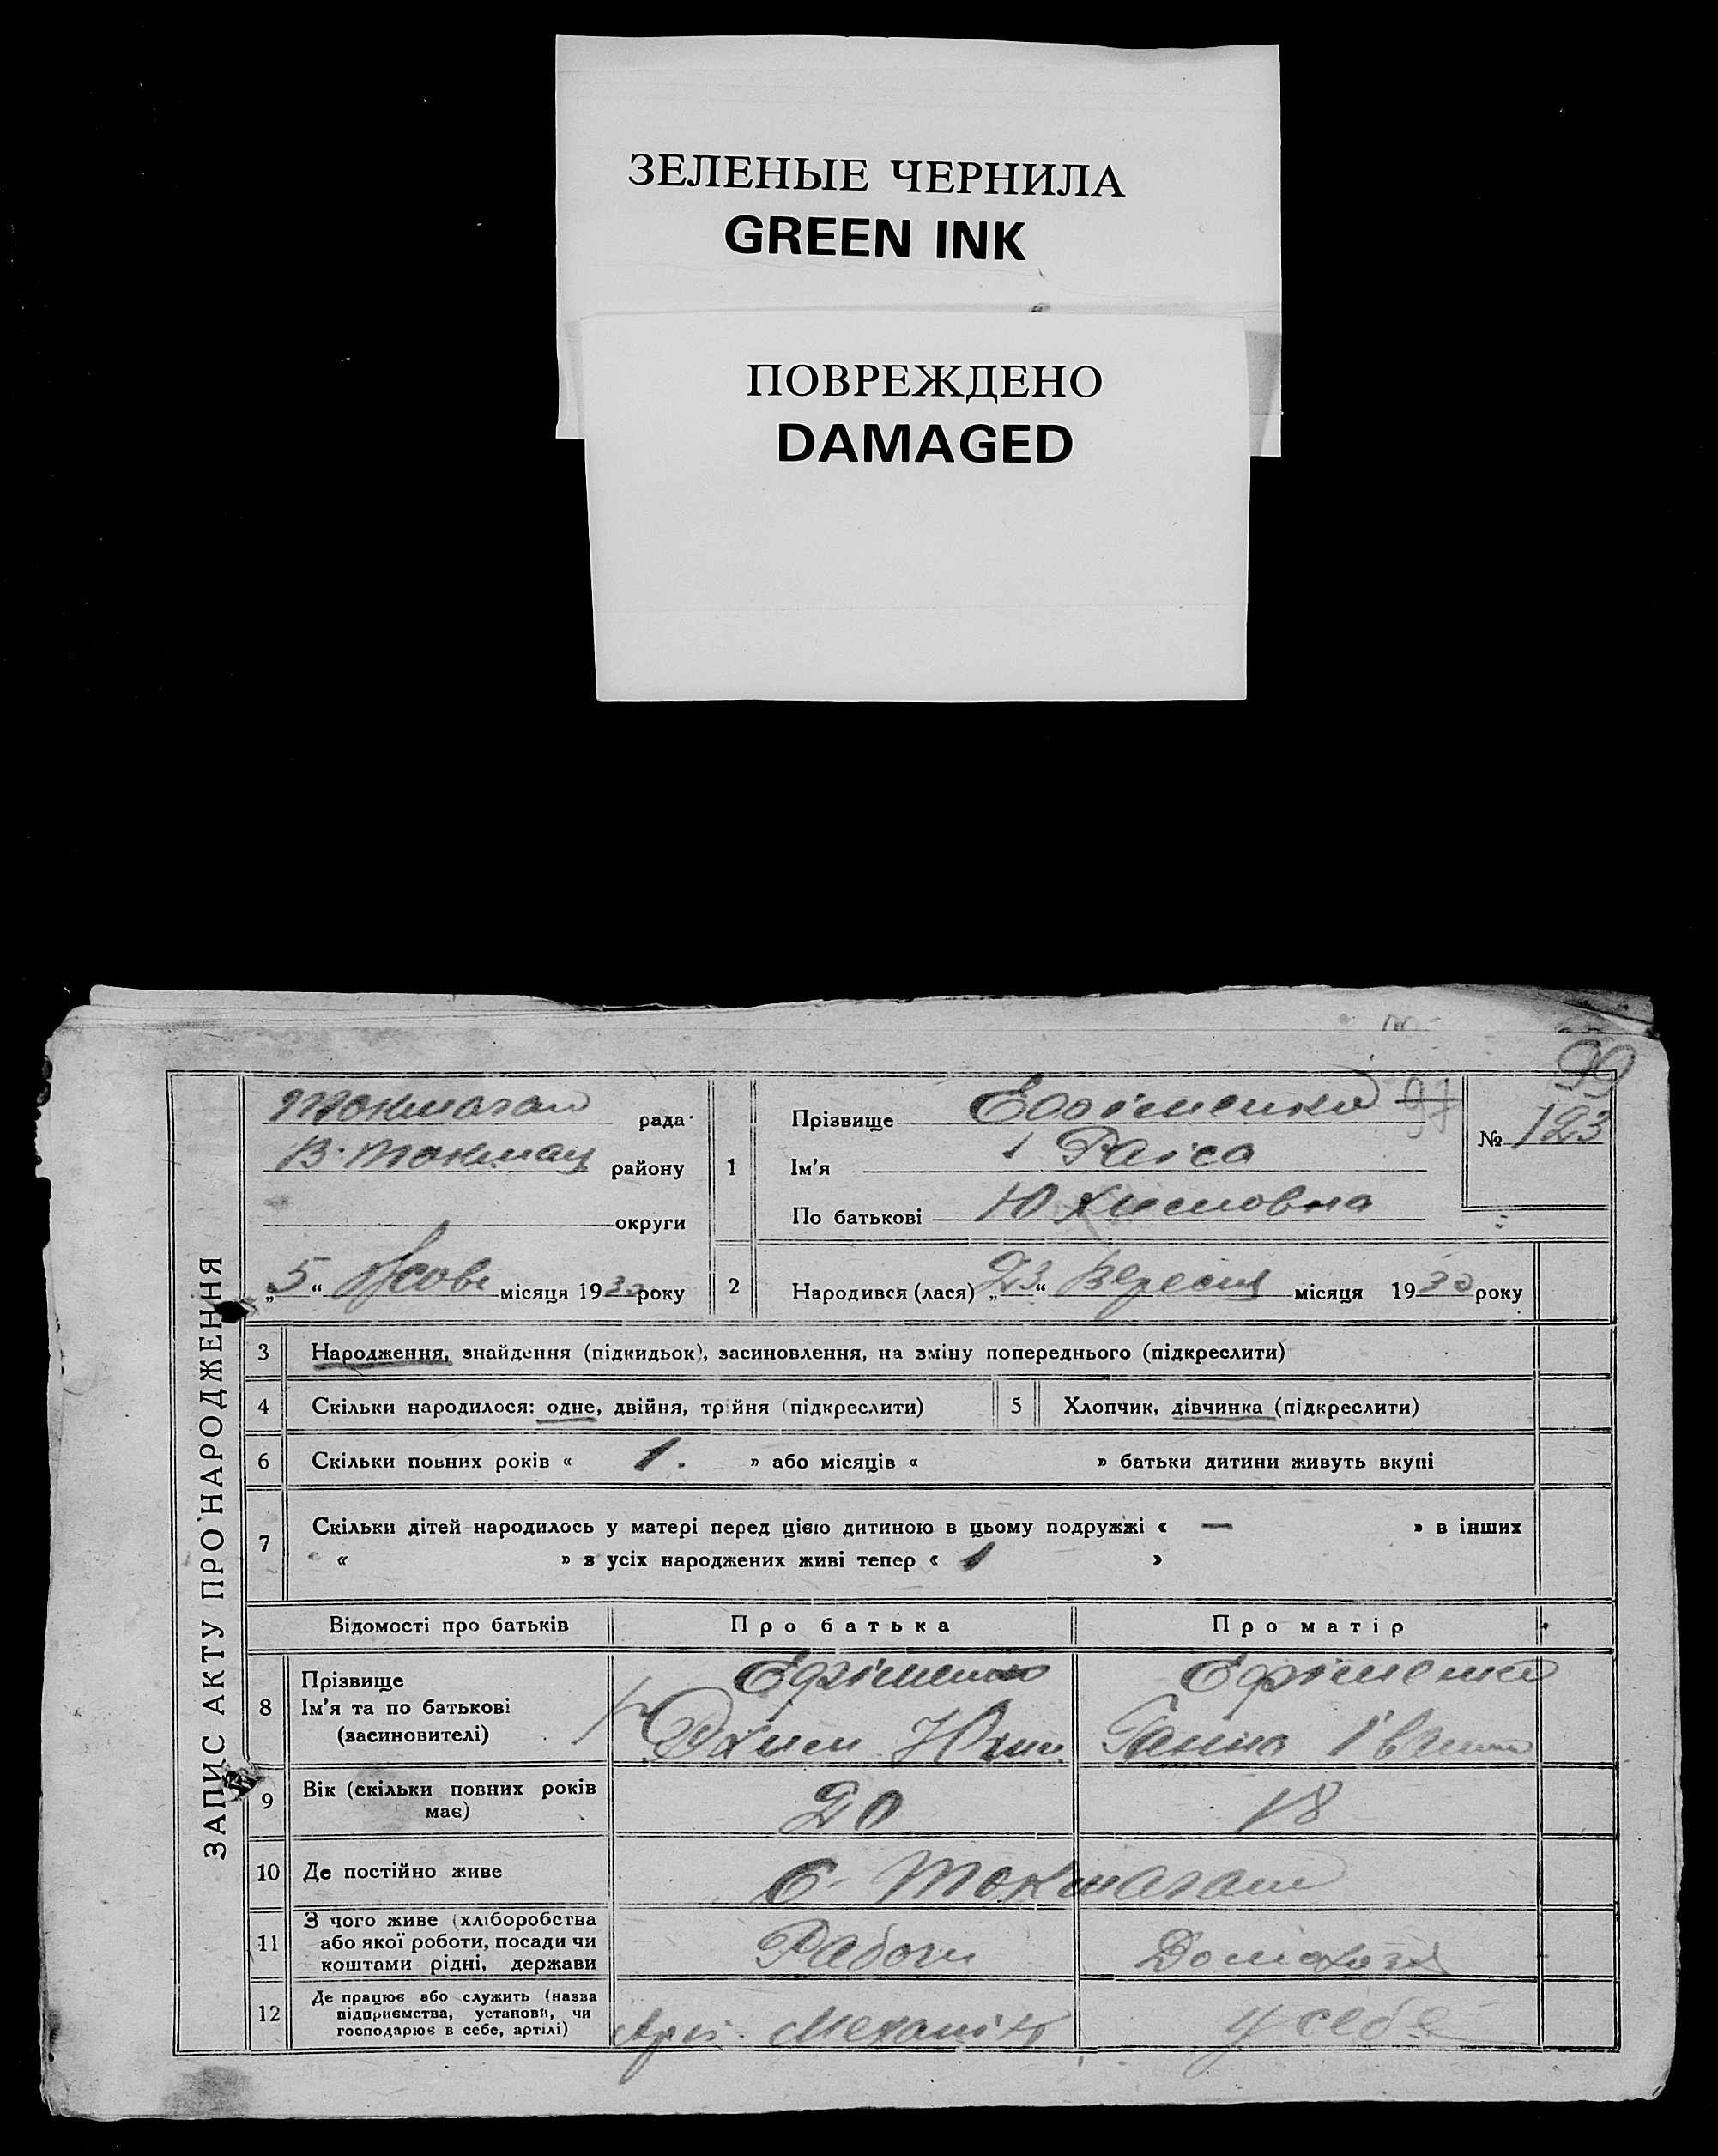 ЗЕЛЕНЫЕ ЧЕРНИЛА
GREEN INK
ПОВРЕЖДЕНО
DAMAGED
99
ЗАПИС АКТУ ПРО НАРОДЖЕННЯ
Токмагам рада
В. Токмац району
округи
„5“ Жовт місяця 1930 року
1 Прізвище Ефіменко 97
Ім'я Раіса
По батькові Юхимовна
№ 123
2 Народився (лася) „23“ Вересня місяця 1930 року
3 Народження, знайдення (підкидьок), засиновлення, на зміну попереднього (підкреслити)
4 Скільки народилося: одне, двійня, трійня (підкреслити) 5 Хлопчик, дівчинка (підкреслити)
6 Скільки повних років « 1. » або місяців « » батьки дитини живуть вкупі
7 Скільки дітей народилось у матері перед цією дитиною в цьому подружжі « — » в інших
« » з усіх народжених живі тепер « 1 »
Відомості про батьків Про батька Про матір
8 Прізвище Ефіменко Ефіменко
Ім'я та по батькові Юхим Ганна
(засиновителі)
9 Вік (скільки повних років 20 18
має)
10 Де постійно живе с. Токмагам
11 З чого живе (хліборобства
або якої роботи, посади чи Рабочи Домохозя
коштами рідні, держави
12 Де працює або служить (назва
підприємства, установи, чи у себе
господарює в себе, артілі) Механік